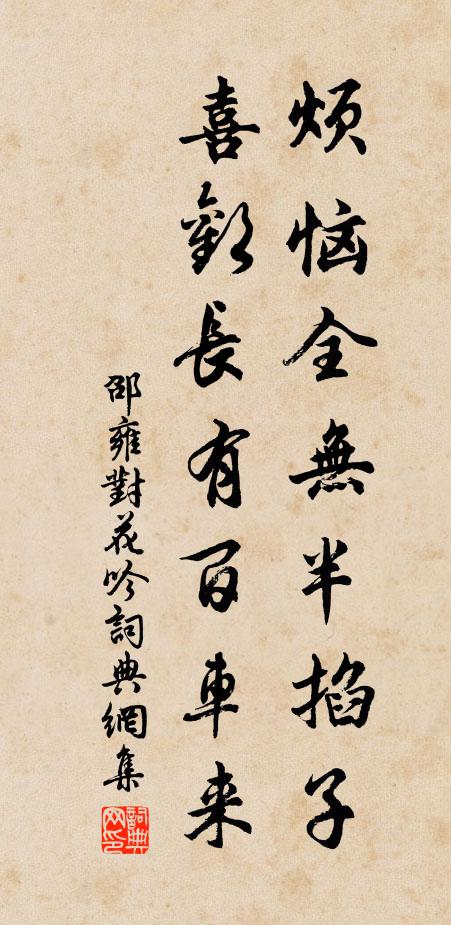 烦恼全無半掐子
喜歡長有百車来
邵雍對花吟詞典網集
詞典网印